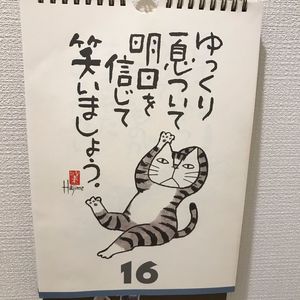 ゆっくり
息ついて
明日を
信じて
笑いましょう。
Hajime
16